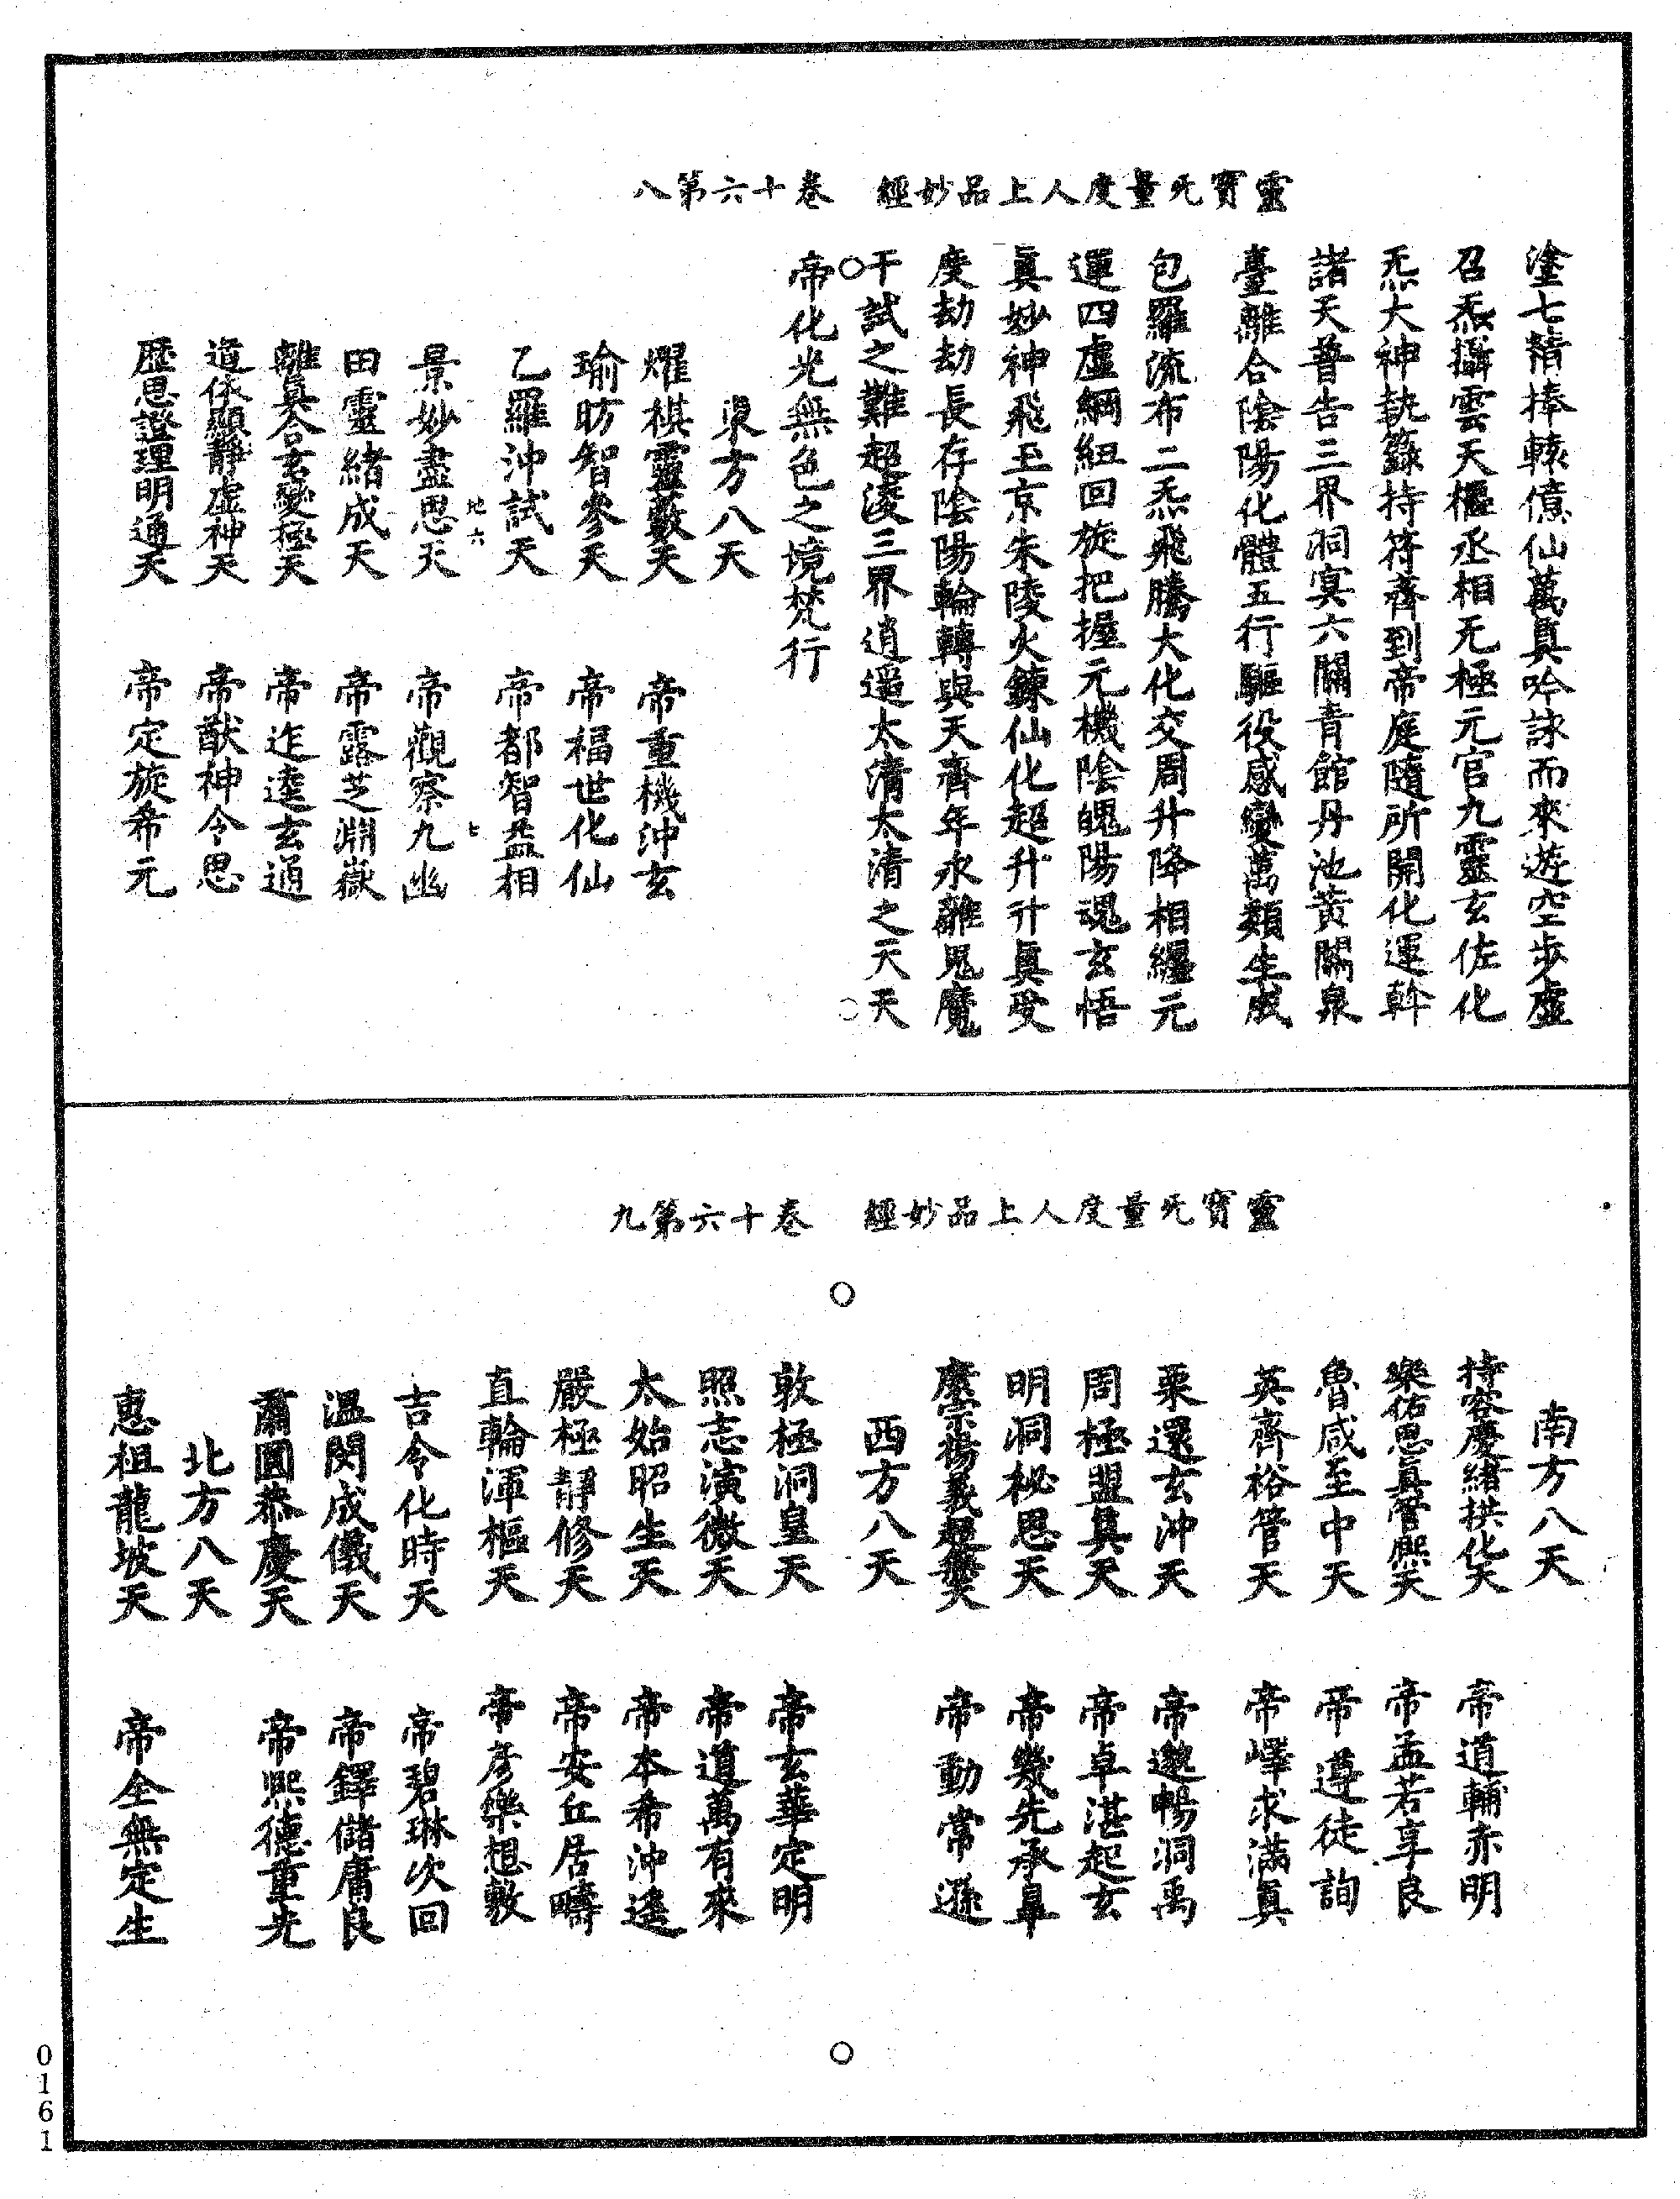 靈寶无量度人上品妙經　卷十六第八
塗七精捧轅億仙萬眞吟詠而來遊空步虛
召炁攝雲天樞丞相无極元官九靈玄佐化
炁大神執籙持符齊到帝庭隨所開化運幹
諸天普告三界洞冥六關青館丹池黃闕泉
臺離合陰陽化體五行驅役感變萬類生成
包羅流布二炁飛騰大化交周升降相纏元
運四虛綱紐回旋把握元機陰魄陽魂玄悟
眞妙神飛玉京朱陵火鍊仙化超升升眞受
度劫劫長存陰陽輪轉與天齊年永離鬼魔
干試之難超淩三界逍遥太清太清之天天
帝化光無色之境梵行
東方八天
燿棋靈藪天　帝重機沖玄
瑜昉智參天　帝福世化仙
乙羅沖試天　帝都智益相
地六　七
景妙盡思天　帝觀察九幽
田靈緒成天　帝露芝淵嶽
離眞合玄變極天　帝迮逵玄通
道依顯靜虛神天　帝猷神令思
歷思證理明通天　帝定旋希元
靈寶无量度人上品妙經　卷十六第九
南方八天
持容慶緒拱化天　帝道輔赤明
樂佑思眞管熙天　帝孟若享良
魯咸至中天　帝遵徒詢
英齊裕管天　帝嶧求滿眞
栗還玄沖天　帝邈暢洞禹
周極盟眞天　帝卓湛起玄
明洞秘思天　帝幾先承阜
麋宗揚義超無天　帝動常遜
西方八天
敦極洞皇天　帝玄華定明
照志演微天　帝道萬有來
太始昭生天　帝本希沖遙
嚴極靜修天　帝安丘居疇
直輪渾樞天　帝彥樂想敷
吉令化時天　帝碧琳次回
溫閔成儀天　帝鐸儲庸良
肅圓恭慶天　帝熙德重光
北方八天
惠祖龍坡天　帝全無定生
0161